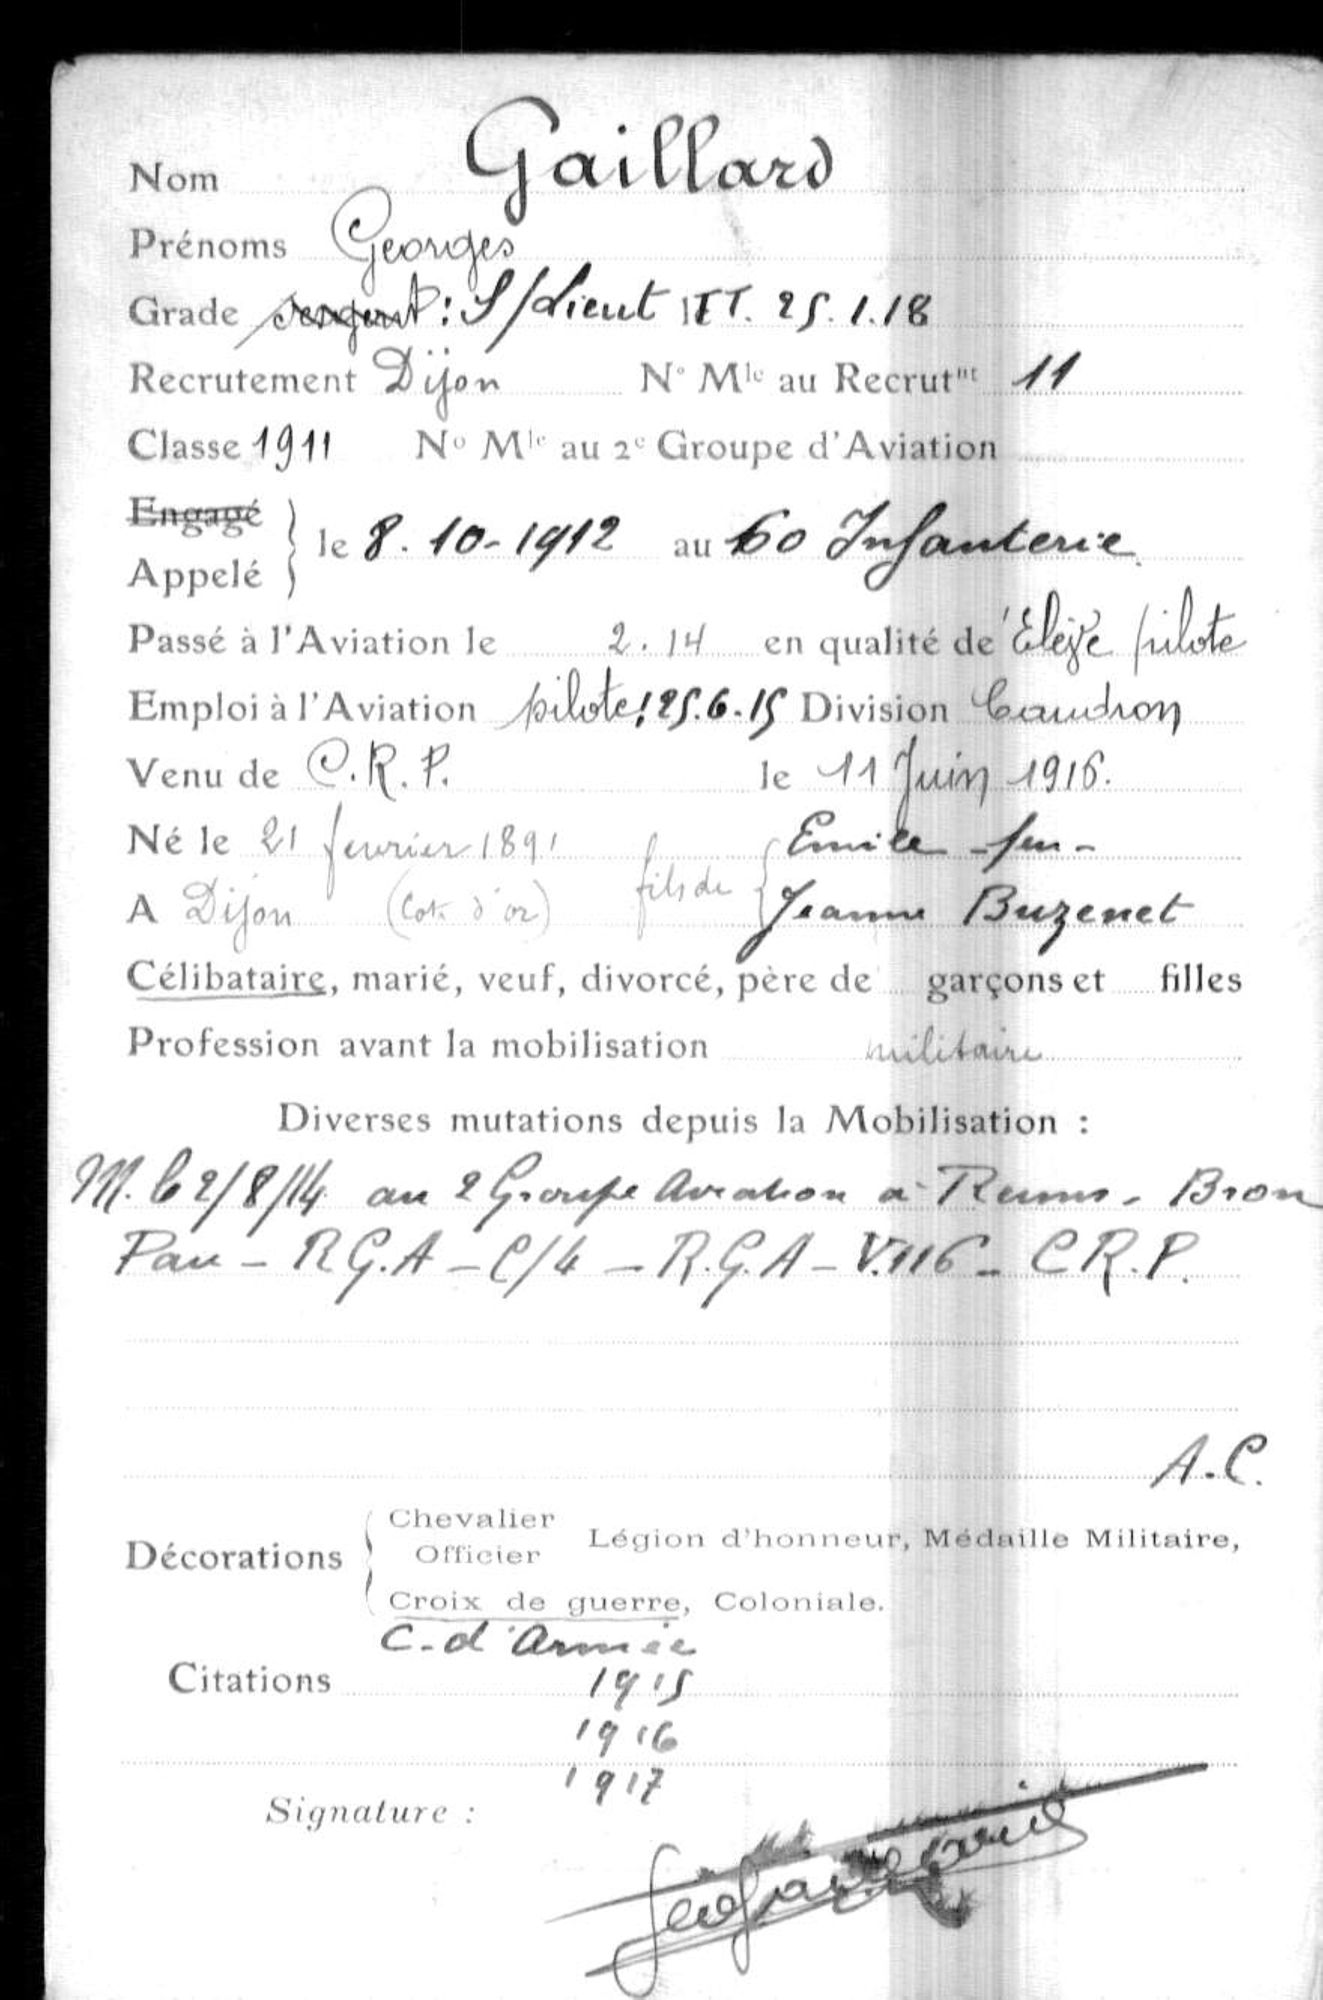 Nom Gaillard
Prénoms Georges
Grade sergent : S/Lieut ITT. 25.1.18
Recrutement Dijon N° Mle au Recrutnt 11
Classe 1911 No Mle au 2e Groupe d'Aviation
Engagé
le 8.10-1912 au 60 Infanterie
Appelé
Passé à l'Aviation le 2.14 en qualité de Elève pilote
Emploi à l'Aviation pilote: 25.6.15 Division Caudron
Venu de C.R.P. le 11 Juin 1916.
Né le 21 fevrier 1891 Emile feu -
A Dijon (Cote d'or) fils de Jeanne Buzenet
Célibataire, marié, veuf, divorcé, père de garçons et filles
Profession avant la mobilisation militaire
Diverses mutations depuis la Mobilisation :
M. le 2/8/14 au 2 Groupe Aviation a Reims - Bron
Pau - R.G.A - C/4 - R.G.A - V.116 - C.R.P.
A.C.
Chevalier
Décorations Officier Légion d'honneur, Médaille Militaire,
Croix de guerre, Coloniale.
C. d'Armée
Citations 1915
1916
1917
Signature :